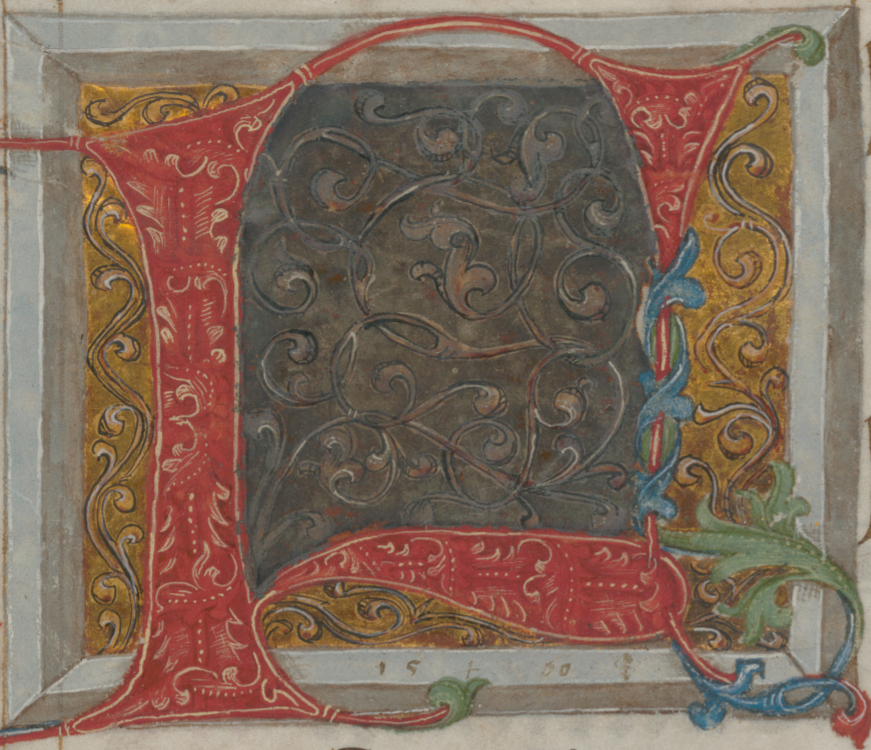 P
15 + 00